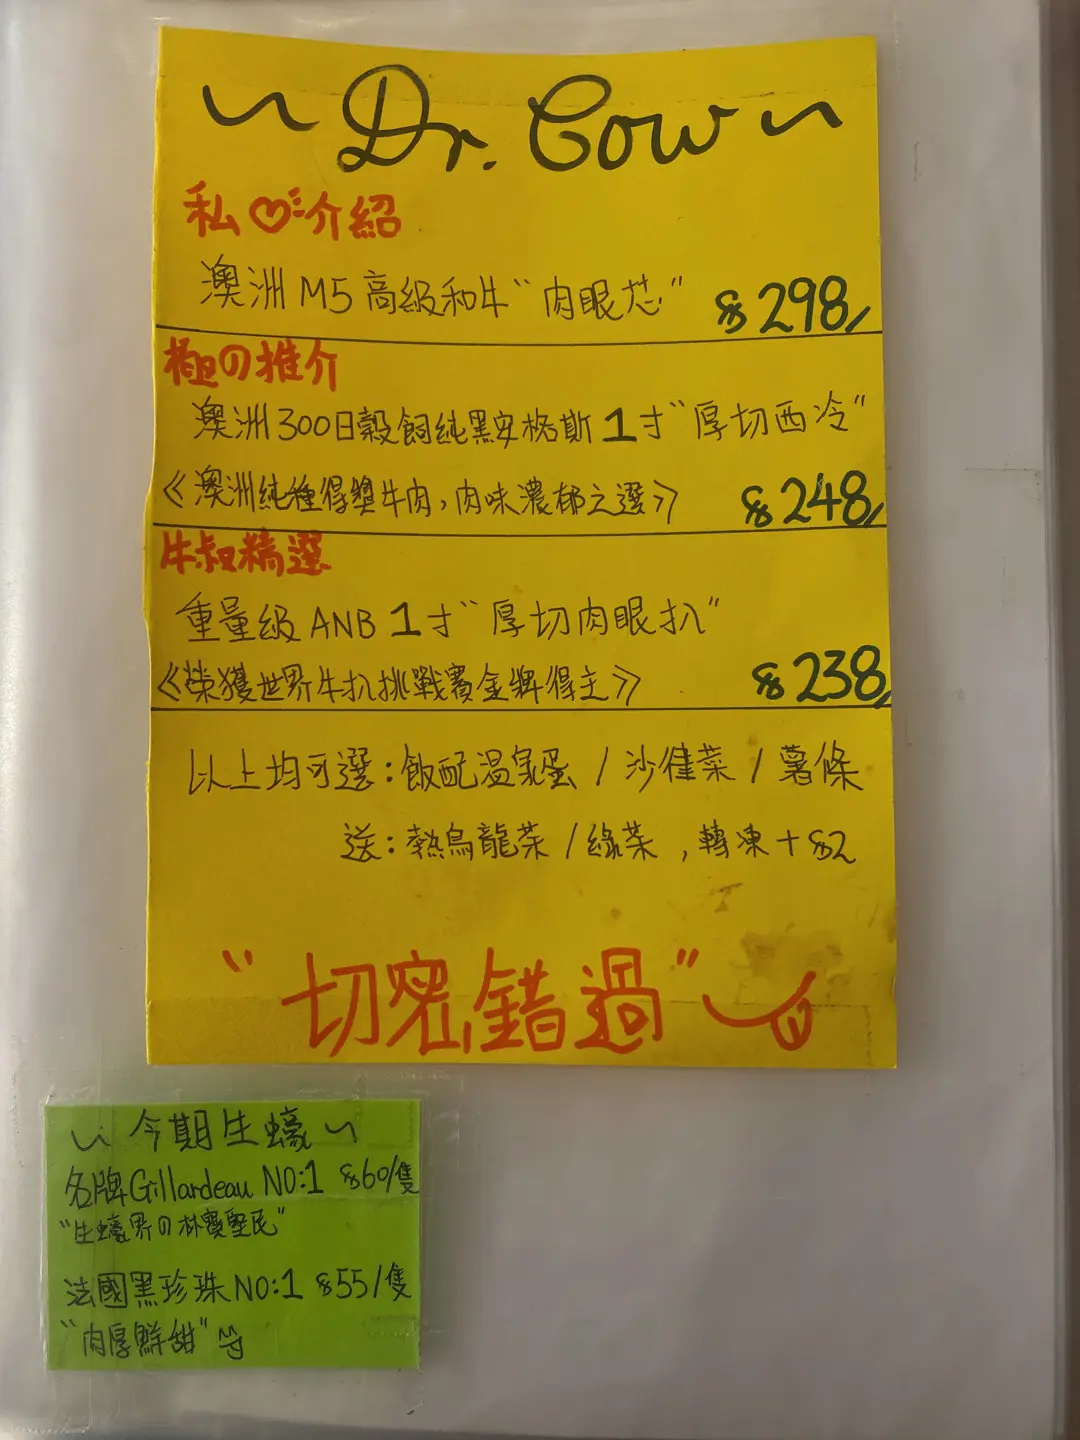 ~ Dr. Cow ~
私♡介紹
澳洲 M5 高級和牛 "肉眼芯" $298/
極の推介
澳洲300日穀飼純黑安格斯 1寸 "厚切西冷"
《澳洲純種得獎牛肉,肉味濃郁之選》 $248/
牛叔精選
重量級 ANB 1寸 "厚切肉眼扒"
《榮獲世界牛扒挑戰賽金牌得主》 $238/
以上均可選:飯配温泉蛋 / 沙律菜 / 薯條
送:熱烏龍茶 / 綠茶 , 轉凍 + $2
"切密錯過"
~ 今期生蠔 ~
名牌Gillardeau NO:1 $60/隻
"生蠔界の朴寶堅尼"
法國黑珍珠 NO:1 $55/隻
"肉厚鮮甜"